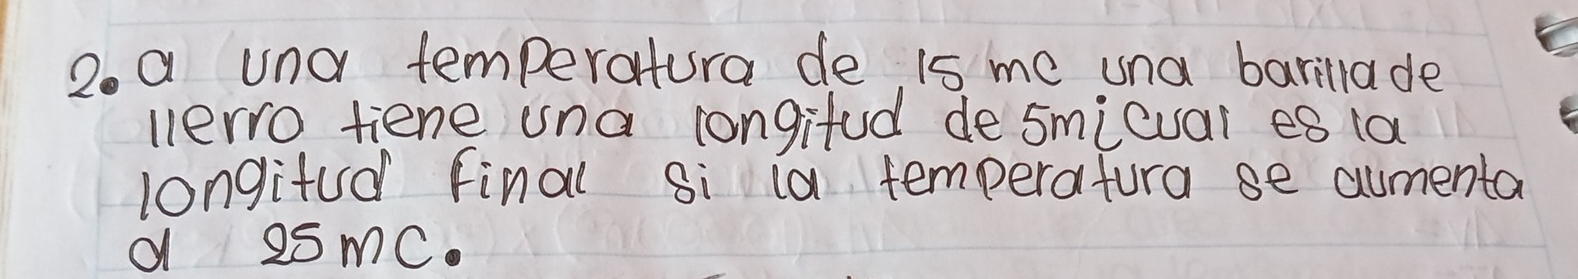 2. a una temperatura de 15 mc una barilla de
llerro tiene una longitud de 5m¡ cual es la
longitud final si la temperatura se aumenta
a 25 mc.